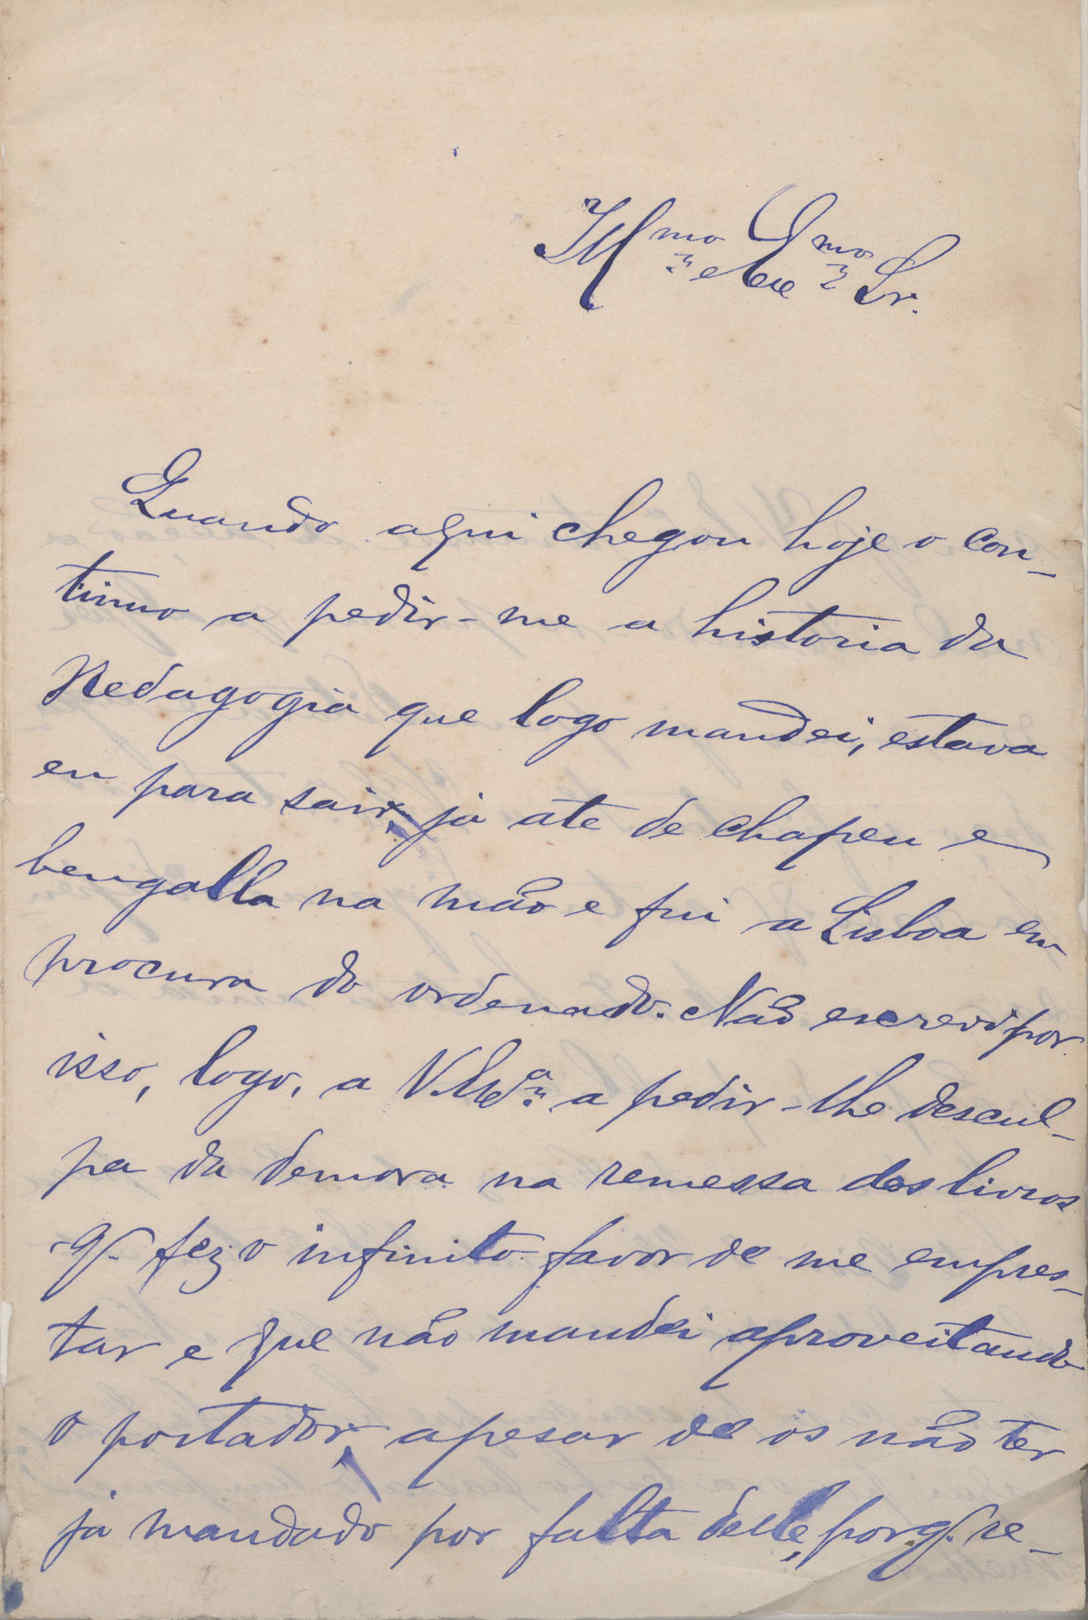 Ill.mo e Exc.mo Sr.
Quando aqui chegou hoje o con-
tinuo a pedir-me a historia da
Pedagogia que logo mandei, estava
eu para sair, já até de chapeu e
bengalla na mão e fui a Lisboa em
procura do ordenado. Não escrevi por
isso, logo, a a pedir-lhe descul-
pa da demora na remessa dos livros
q. fez o infinito favor de me empres-
tar e que não mandei aproveitando
o portador, apesar de os não ter
já mandado por falta delle, porq. re-